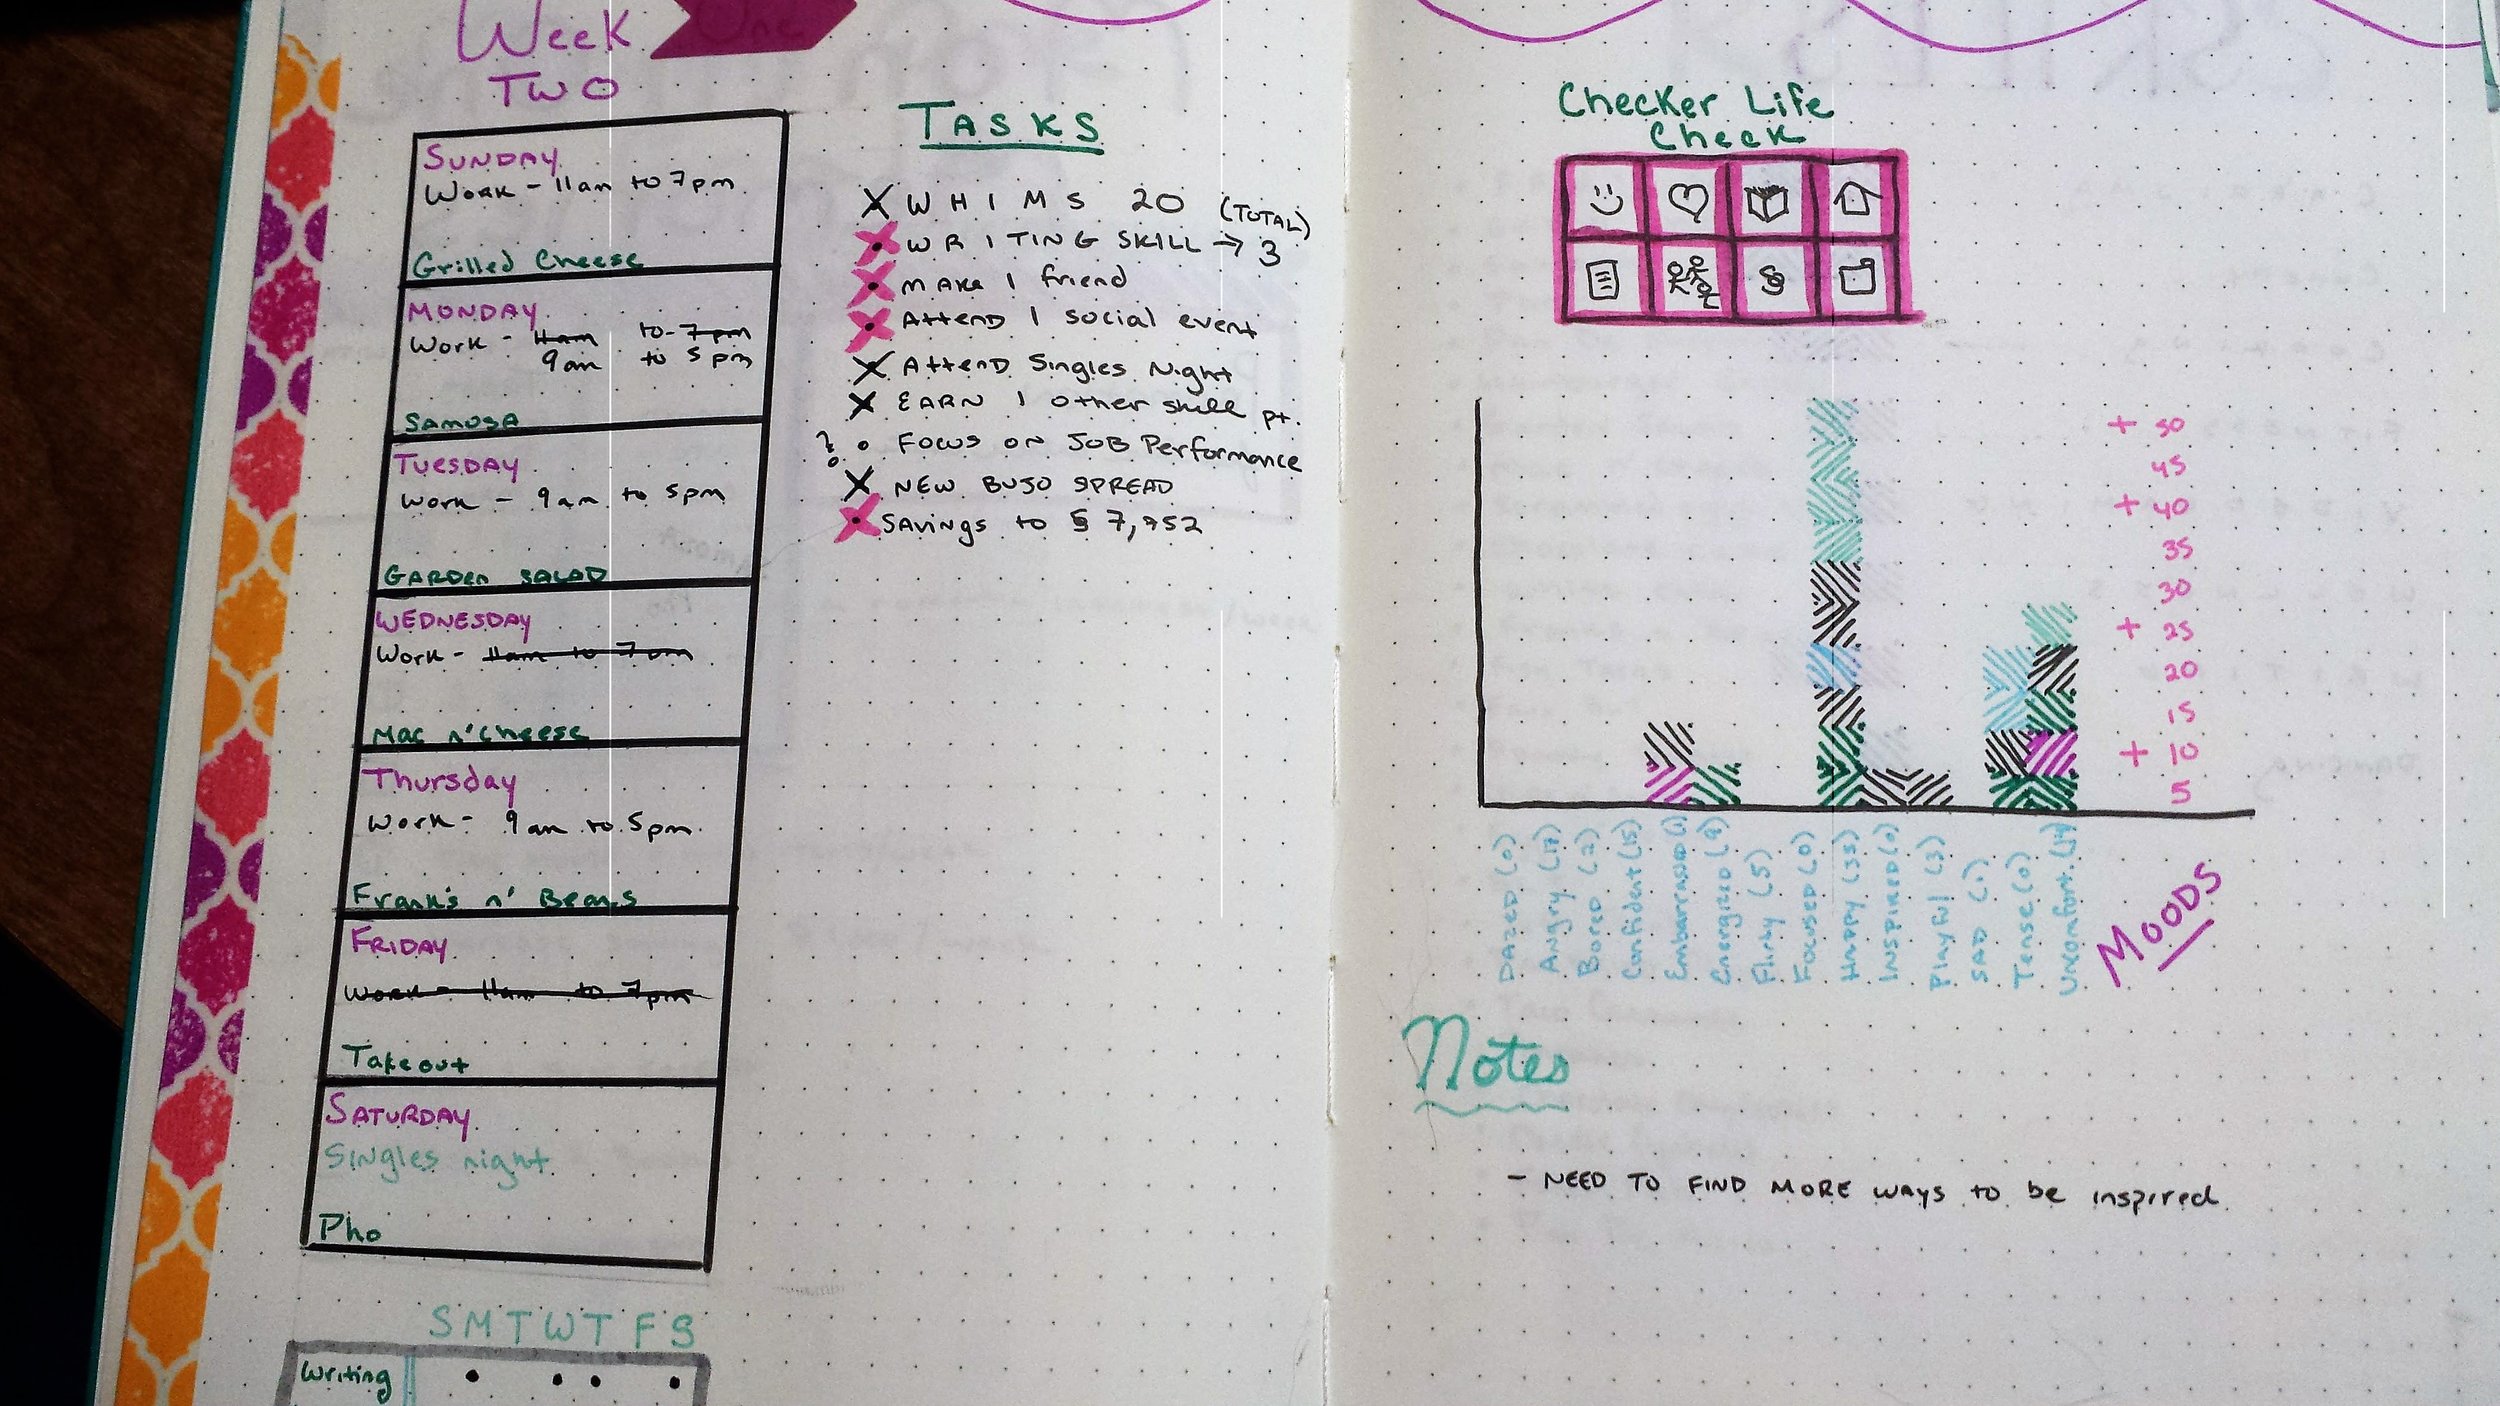 Week One
TWO
SUNDAY
Work - 11am to 7pm
Grilled Cheese
MONDAY
Work - 11am to 7pm
9am to 5pm
SAMOSA
TUESDAY
Work - 9am to 5pm
GARDEN SALAD
WEDNESDAY
Work - 11am to 7pm
Mac n' Cheese
Thursday
Work - 9am to 5pm
Frank's n' Beans
FRIDAY
Work - 11am to 7pm
Takeout
SATURDAY
Singles night
Pho
S M T W T F S
Writing
TASKS
WHIMS 20 (TOTAL)
WRITING SKILL → 3
MAKE 1 friend
Attend 1 social event
Attend Singles Night
EARN 1 other skill pt.
FOCUS ON JOB Performance
NEW BUJO SPREAD
SAvings to § 7,752
Checker Life
Check
+ 50
45
+ 40
35
30
+ 25
20
15
+ 10
5
DAZED (0)
Angry (17)
Bored (2)
Confident (15)
Embarrassed (1)
Energized (9)
Flirty (5)
Focused (0)
Happy (35)
INSPIRED (0)
Playful (3)
SAD (1)
Tense (0)
Uncomfort. (14)
MOODS
Notes
- NEED TO FIND MORE WAYS to be inspired